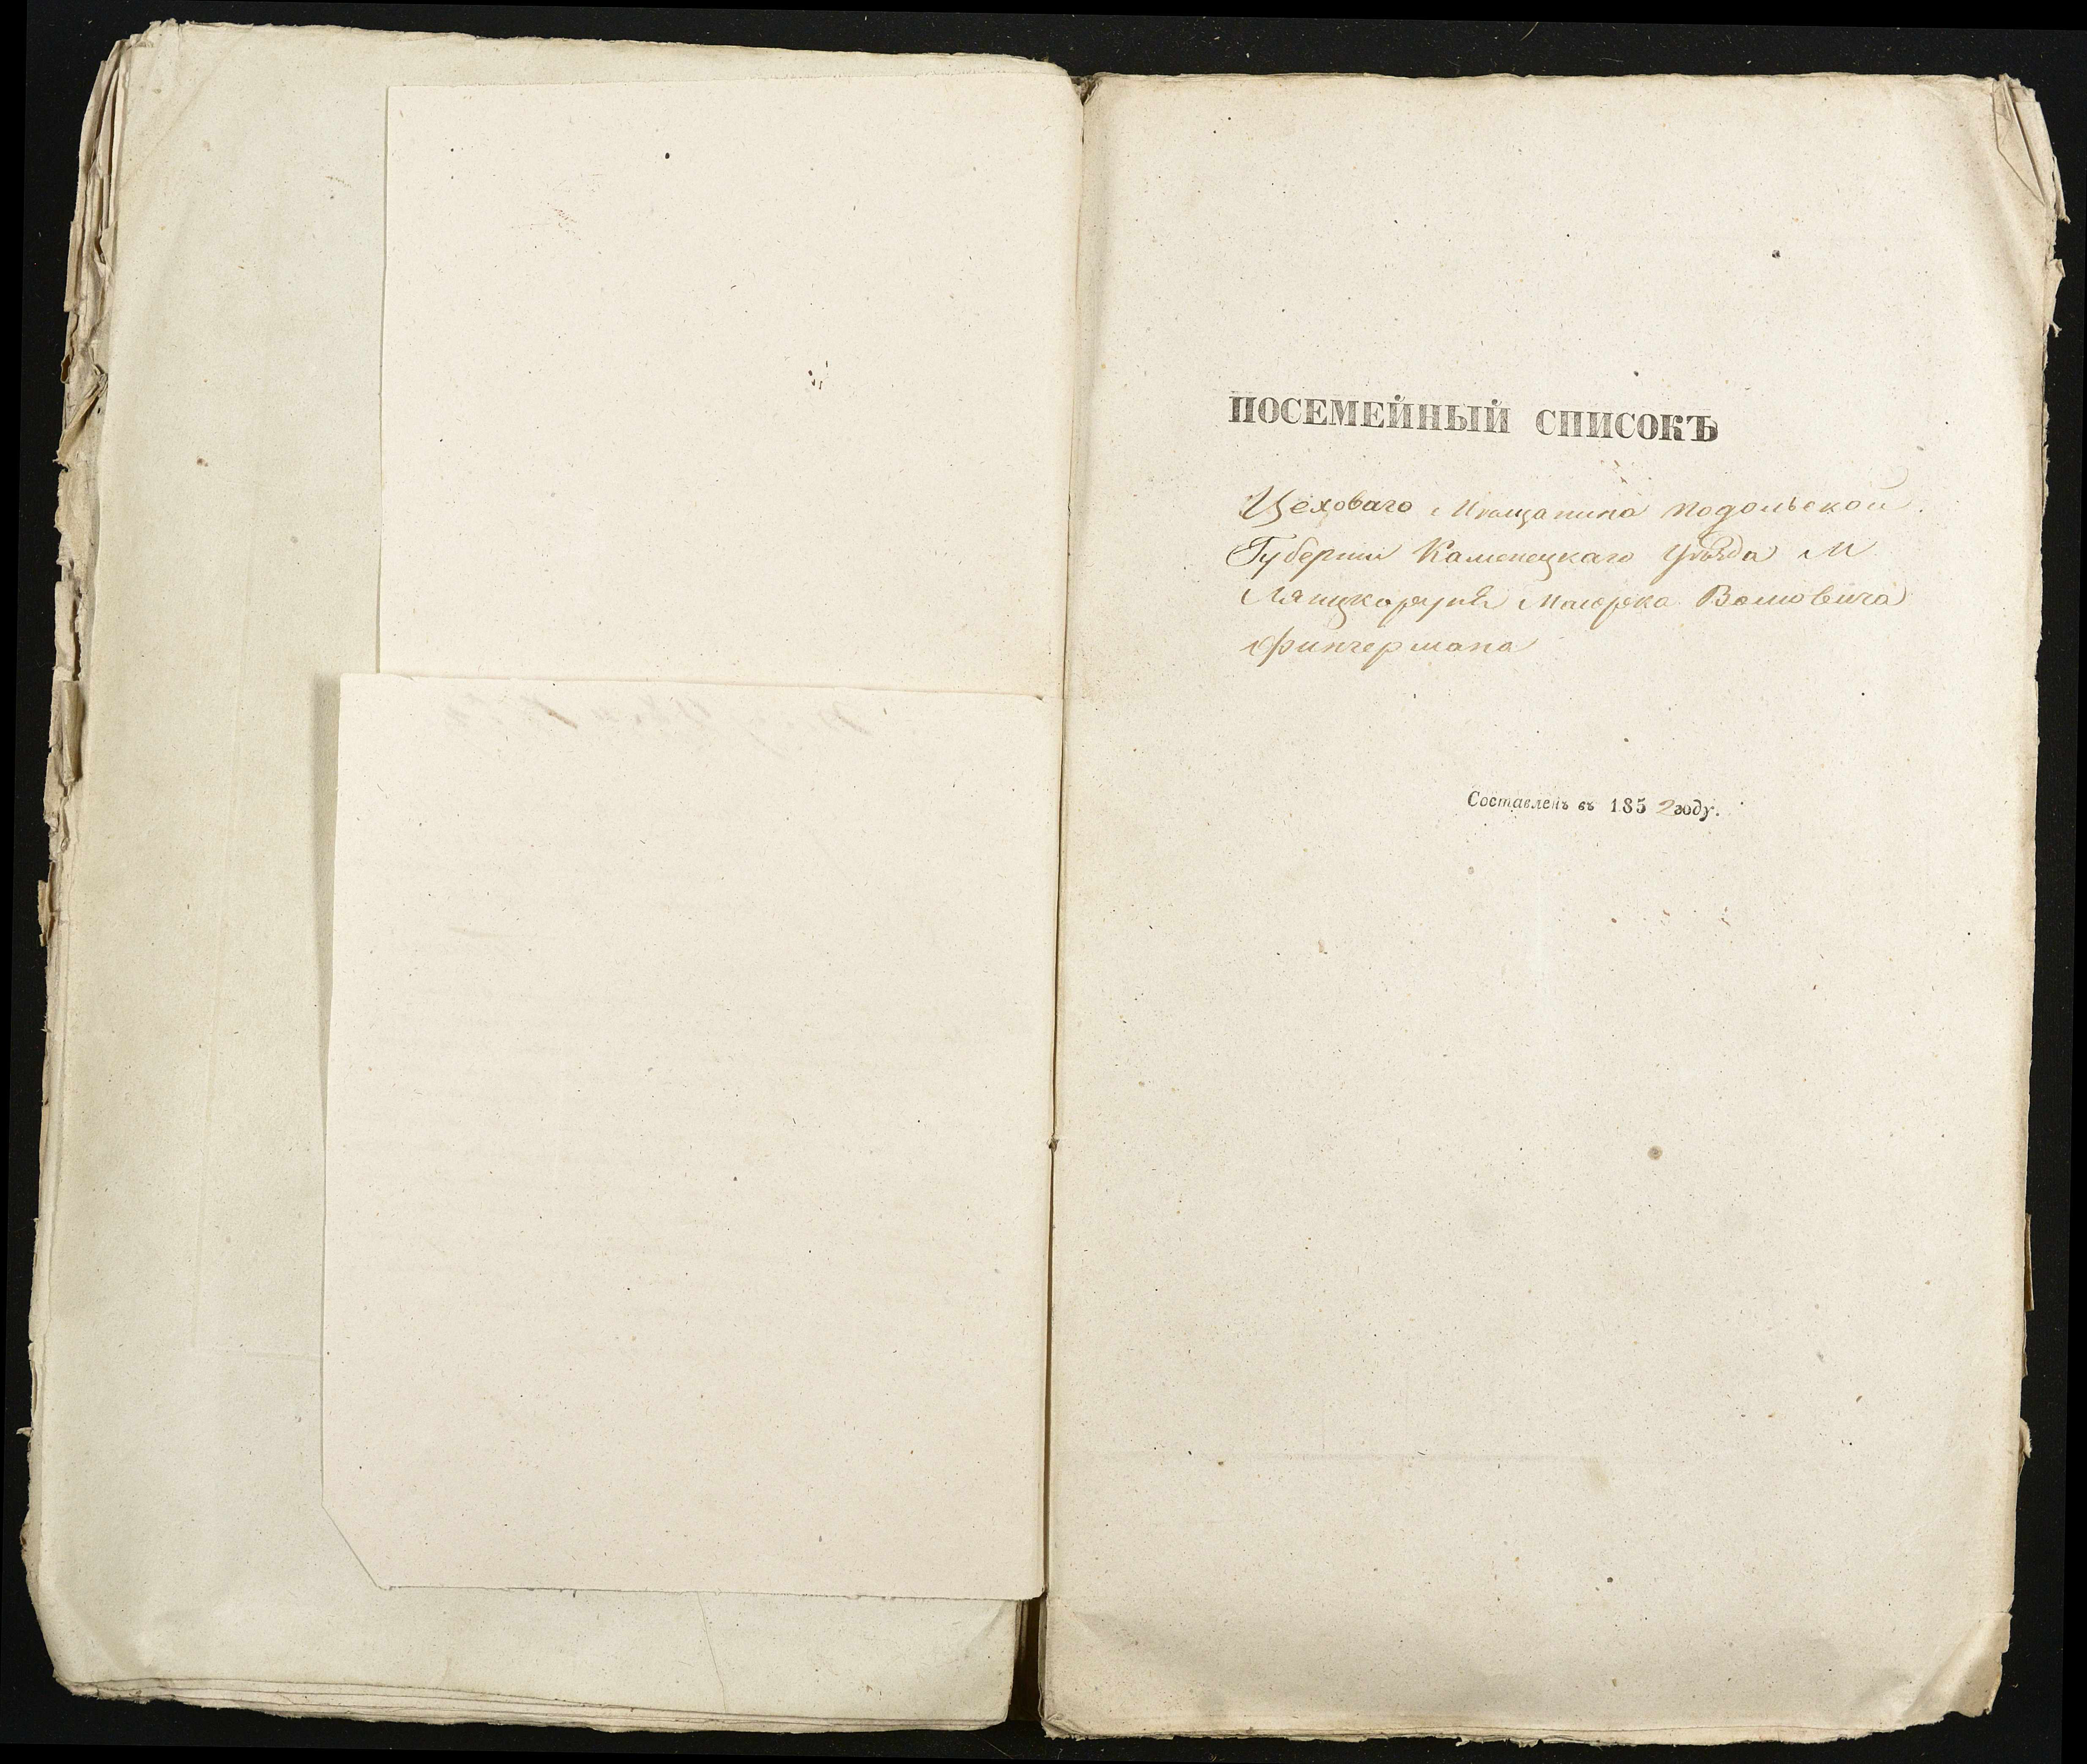 ПОСЕМЕЙНЫЙ СПИСОКЪ
Цеховаго Мѣщанина Подольской
Губерніи Каменецкаго Уѣзда М
Ляницкоруня Вольовича
Фингермана
Составленъ въ 1852 году.